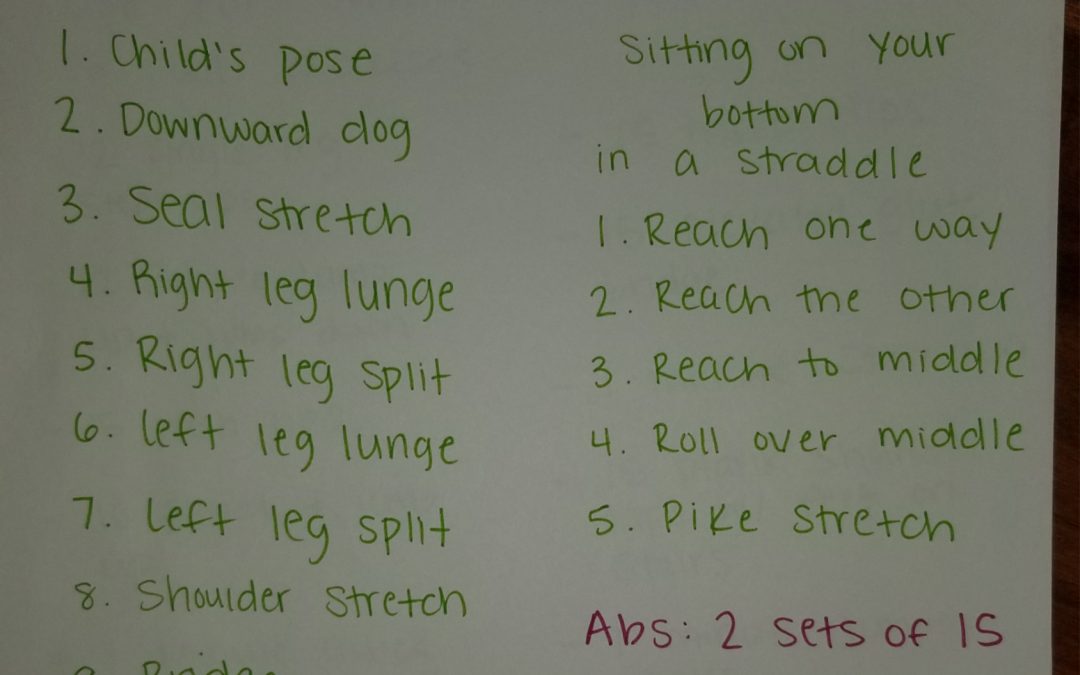 1. Child's pose
2. Downward dog
3. Seal stretch
4. Right leg lunge
5. Right leg split
6. left leg lunge
7. left leg split
8. Shoulder stretch
Sitting on your
bottom
in a straddle
1. Reach one way
2. Reach the other
3. Reach to middle
4. Roll over middle
5. Pike stretch
Abs: 2 sets of 15